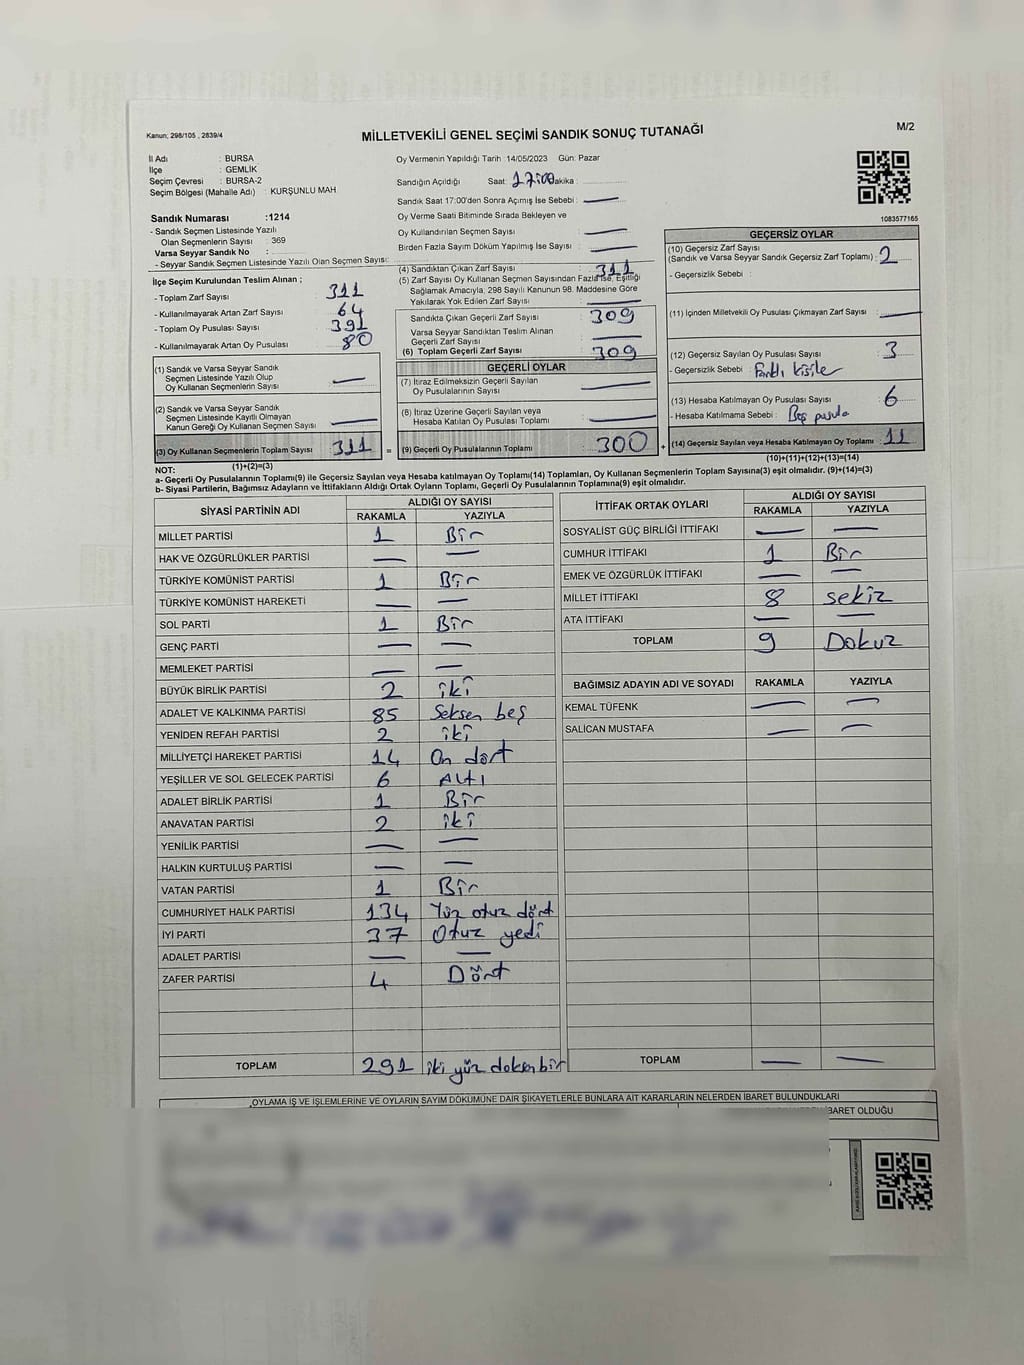 Kanun: 298/105 , 2839/4
MİLLETVEKİLİ GENEL SEÇİMİ SANDIK SONUÇ TUTANAĞI
M/2
İl Adı : BURSA
İlçe : GEMLİK
Seçim Çevresi : BURSA-2
Seçim Bölgesi (Mahalle Adı) : KURŞUNLU MAH
Oy Vermenin Yapıldığı Tarih :14/05/2023 Gün: Pazar
Sandığın Açıldığı Saat: 17:00 Dakika :
Sandık Saat 17:00'den Sonra Açımış İse Sebebi : —
Oy Verme Saati Bitiminde Sırada Bekleyen ve
Oy Kullandırılan Seçmen Sayısı : —
Birden Fazla Sayım Döküm Yapılmış İse Sayısı : —
1083577165
Sandık Numarası :1214
- Sandık Seçmen Listesinde Yazılı
Olan Seçmenlerin Sayısı : 369
Varsa Seyyar Sandık No :
- Seyyar Sandık Seçmen Listesinde Yazılı Olan Seçmen Sayısı:
İlçe Seçim Kurulundan Teslim Alınan ;
- Toplam Zarf Sayısı : 311
- Kullanılmayarak Artan Zarf Sayısı : 64
- Toplam Oy Pusulası Sayısı : 391
- Kullanılmayarak Artan Oy Pusulası : 80
(1) Sandık ve Varsa Seyyar Sandık
Seçmen Listesinde Yazılı Olup
Oy Kullanan Seçmenlerin Sayısı : —
(2) Sandık ve Varsa Seyyar Sandık
Seçmen Listesinde Kayıtlı Olmayan
Kanun Gereği Oy Kullanan Seçmen Sayısı : —
(3) Oy Kullanan Seçmenlerin Toplam Sayısı : 311
(1)+(2)=(3)
(4) Sandıktan Çıkan Zarf Sayısı : 311
(5) Zarf Sayısı Oy Kullanan Seçmen Sayısından Fazla İse, Eşitliği
Sağlamak Amacıyla, 298 Sayılı Kanunun 98. Maddesine Göre
Yakılarak Yok Edilen Zarf Sayısı : —
Sandıkta Çıkan Geçerli Zarf Sayısı : 309
Varsa Seyyar Sandıktan Teslim Alınan
Geçerli Zarf Sayısı : —
(6) Toplam Geçerli Zarf Sayısı : 309
GEÇERLİ OYLAR
(7) İtiraz Edilmeksizin Geçerli Sayılan
Oy Pusulalarının Sayısı : —
(8) İtiraz Üzerine Geçerli Sayılan veya
Hesaba Katılan Oy Pusulası Toplamı : —
= (9) Geçerli Oy Pusulalarının Toplamı : 300 +
GEÇERSİZ OYLAR
(10) Geçersiz Zarf Sayısı
(Sandık ve Varsa Seyyar Sandık Geçersiz Zarf Toplamı) : 2
- Geçersizlik Sebebi :
(11) İçinden Milletvekili Oy Pusulası Çıkmayan Zarf Sayısı : —
(12) Geçersiz Sayılan Oy Pusulası Sayısı : 3
- Geçersizlik Sebebi : Farklı kişiler
(13) Hesaba Katılmayan Oy Pusulası Sayısı : 6
- Hesaba Katılmama Sebebi : Boş pusula
(14) Geçersiz Sayılan veya Hesaba Katılmayan Oy Toplamı : 11
(10)+(11)+(12)+(13)=(14)
NOT:
a- Geçerli Oy Pusulalarının Toplamı(9) ile Geçersiz Sayılan veya Hesaba katılmayan Oy Toplamı(14) Toplamları, Oy Kullanan Seçmenlerin Toplam Sayısına(3) eşit olmalıdır. (9)+(14)=(3)
b- Siyasi Partilerin, Bağımsız Adayların ve İttifakların Aldığı Ortak Oyların Toplamı, Geçerli Oy Pusulalarının Toplamına(9) eşit olmalıdır.
SİYASİ PARTİNİN ADI ALDIĞI OY SAYISI
RAKAMLA YAZIYLA
MİLLET PARTİSİ 1 Bir
HAK VE ÖZGÜRLÜKLER PARTİSİ — —
TÜRKİYE KOMÜNİST PARTİSİ 1 Bir
TÜRKİYE KOMÜNİST HAREKETİ — —
SOL PARTİ 1 Bir
GENÇ PARTİ — —
MEMLEKET PARTİSİ — —
BÜYÜK BİRLİK PARTİSİ 2 iki
ADALET VE KALKINMA PARTİSİ 85 Seksen beş
YENİDEN REFAH PARTİSİ 2 iki
MİLLİYETÇİ HAREKET PARTİSİ 14 On dört
YEŞİLLER VE SOL GELECEK PARTİSİ 6 Altı
ADALET BİRLİK PARTİSİ 1 Bir
ANAVATAN PARTİSİ 2 iki
YENİLİK PARTİSİ — —
HALKIN KURTULUŞ PARTİSİ — —
VATAN PARTİSİ 1 Bir
CUMHURİYET HALK PARTİSİ 134 Yüz otuz dört
İYİ PARTİ 37 Otuz yedi
ADALET PARTİSİ — —
ZAFER PARTİSİ 4 Dört
TOPLAM 291 iki yüz doksan bir
İTTİFAK ORTAK OYLARI ALDIĞI OY SAYISI
RAKAMLA YAZIYLA
SOSYALİST GÜÇ BİRLİĞİ İTTİFAKI — —
CUMHUR İTTİFAKI 1 Bir
EMEK VE ÖZGÜRLÜK İTTİFAKI — —
MİLLET İTTİFAKI 8 sekiz
ATA İTTİFAKI — —
TOPLAM 9 Dokuz
BAĞIMSIZ ADAYIN ADI VE SOYADI RAKAMLA YAZIYLA
KEMAL TÜFENK — —
SALİCAN MUSTAFA — —
TOPLAM — —
OYLAMA İŞ VE İŞLEMLERİNE VE OYLARIN SAYIM DÖKÜMÜNE DAİR ŞİKAYETLERLE BUNLARA AİT KARARLARIN NELERDEN İBARET BULUNDUKLARI
BARET OLDUĞU